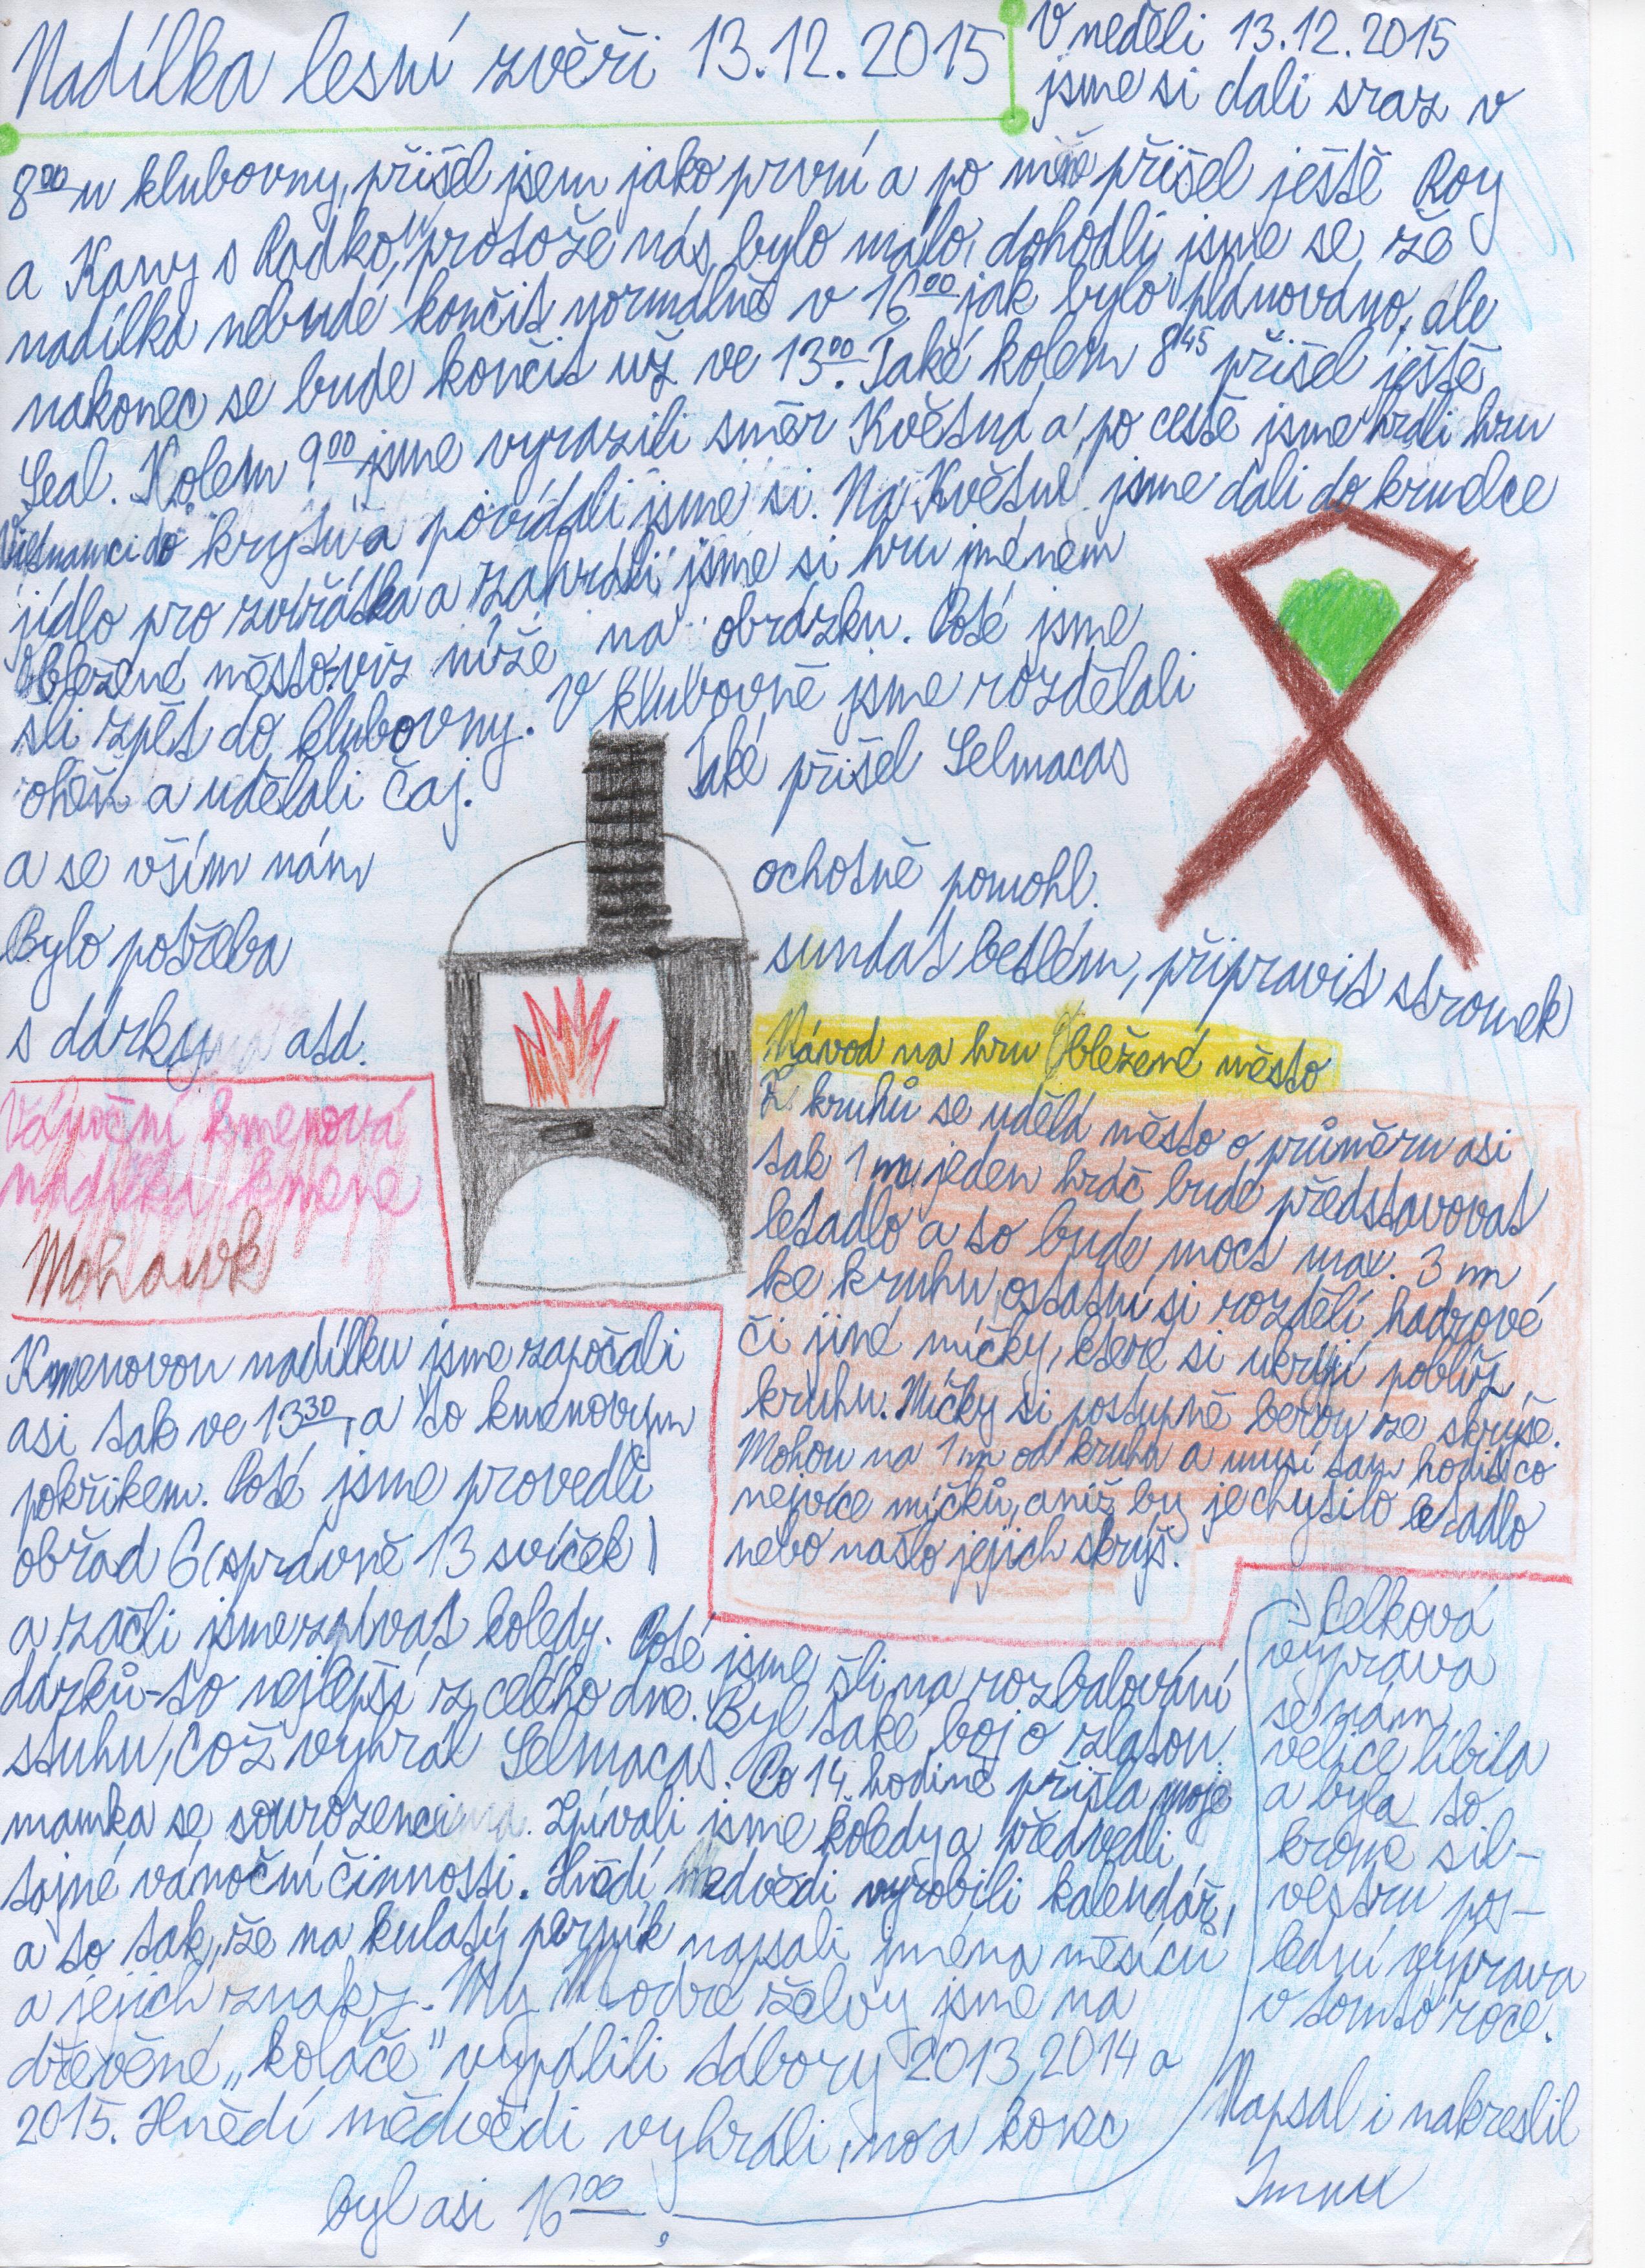 Nadílka lesní zvěři 13.12.2015
V neděli 13.12.2015
jsme si dali sraz v
8⁰⁰ u klubovny, přišel jsem jako první a po mně přišel ještě Roy
a Kany s Radkou, protože nás bylo málo, dohodli jsme se, že
nadílka nebude končit normálně v 16⁰⁰ jak bylo plánováno, ale
nakonec se bude končit už ve 13⁰⁰. Také kolem 8⁴⁵ přišel ještě
Seal. Kolem 9⁰⁰ jsme vyrazili směr Květná a po cestě jsme hráli hru
Vietnamci do krytu a povídali jsme si. Na Květné jsme dali do krmelce
jídlo pro zvířátka a zahráli jsme si hru jménem
Obležené město: viz níže na obrázku. Poté jsme
šli zpět do klubovny. V klubovně jsme rozdělali
oheň a udělali čaj. Také přišel Selmacas
a se vším nám ochotně pomohl.
Bylo potřeba sundat betlém, připravit stromek
s dárky atd.
Návod na hru Obležené město
Z kruhů se udělá město o průměru asi
tak 1 m, jeden hráč bude představovat
letadlo a to bude moct max. 3 m
ke kruhu, ostatní si rozdělí hadrové
či jiné míčky, které si ukryjí poblíž
kruhu. Míčky si postupně berou ze skrýše.
Mohou na 1 m od kruhu a musí tam hodit co
nejvíce míčků, aniž by je chytilo letadlo
nebo našlo jejich skrýš.
Vánoční kmenová
nadílka kmene
Mohawk
Kmenovou nadílku jsme započali
asi tak ve 13³⁰, a to kmenovým
pokřikem. Poté jsme provedli
obřad 6 (správně 13 svíček)
a začli jsme zpívat koledy. Poté jsme šli na rozbalování
dárků - to nejlepší z celého dne. Byl také boj o zlatou
stuhu, což vyhrál Selmacas. Po 14. hodině přišla moje
mamka se sourozenci. Zpívali jsme koledy a předvedli
tajné vánoční činnosti. Hnědí medvědi vyrobili kalendář,
a to tak, že na kulatý perník napsali jména měsíců
a jejich znaky. My Modré želvy jsme na
dřevěné „koláče" vypálili tábory 2013, 2014 a
2015. Hnědí mědvědi vyhráli, no a konec
byl asi 16⁰⁰.
Celková
výprava
se nám
velice líbila
a byla to
kromě sil-
vestru pos-
lední výprava
v tomto roce.
Napsal i nakreslil